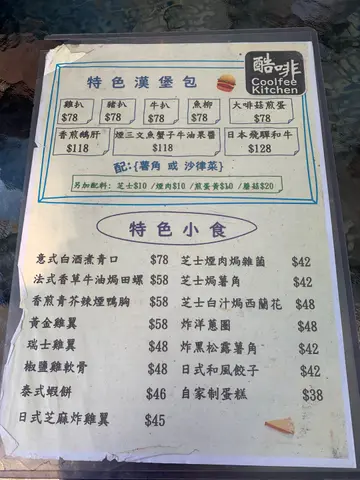 酷啡
Coolfee
Kitchen
特色漢堡包
雞扒 豬扒 牛扒 魚柳 大啡菇煎蛋
$78 $78 $78 $78 $78
香煎鵝肝 煙三文魚蟹子牛油果醬 日本飛驒和牛
$118 $118 $128
配:{薯角 或 沙律菜}
另加配料: 芝士$10 /煙肉$10 /煎蛋黃$10 /蘑菇$20
特色小食
意式白酒煮青口 $78 芝士煙肉焗雜菌 $42
法式香草牛油焗田螺 $58 芝士焗薯角 $42
香煎青芥辣煙鴨胸 $58 芝士白汁焗西蘭花 $48
黃金雞翼 $58 炸洋蔥圈 $48
瑞士雞翼 $48 炸黑松露薯角 $42
椒鹽雞軟骨 $48 日式和風餃子 $42
泰式蝦餅 $46 自家制蛋糕 $38
日式芝麻炸雞翼 $45